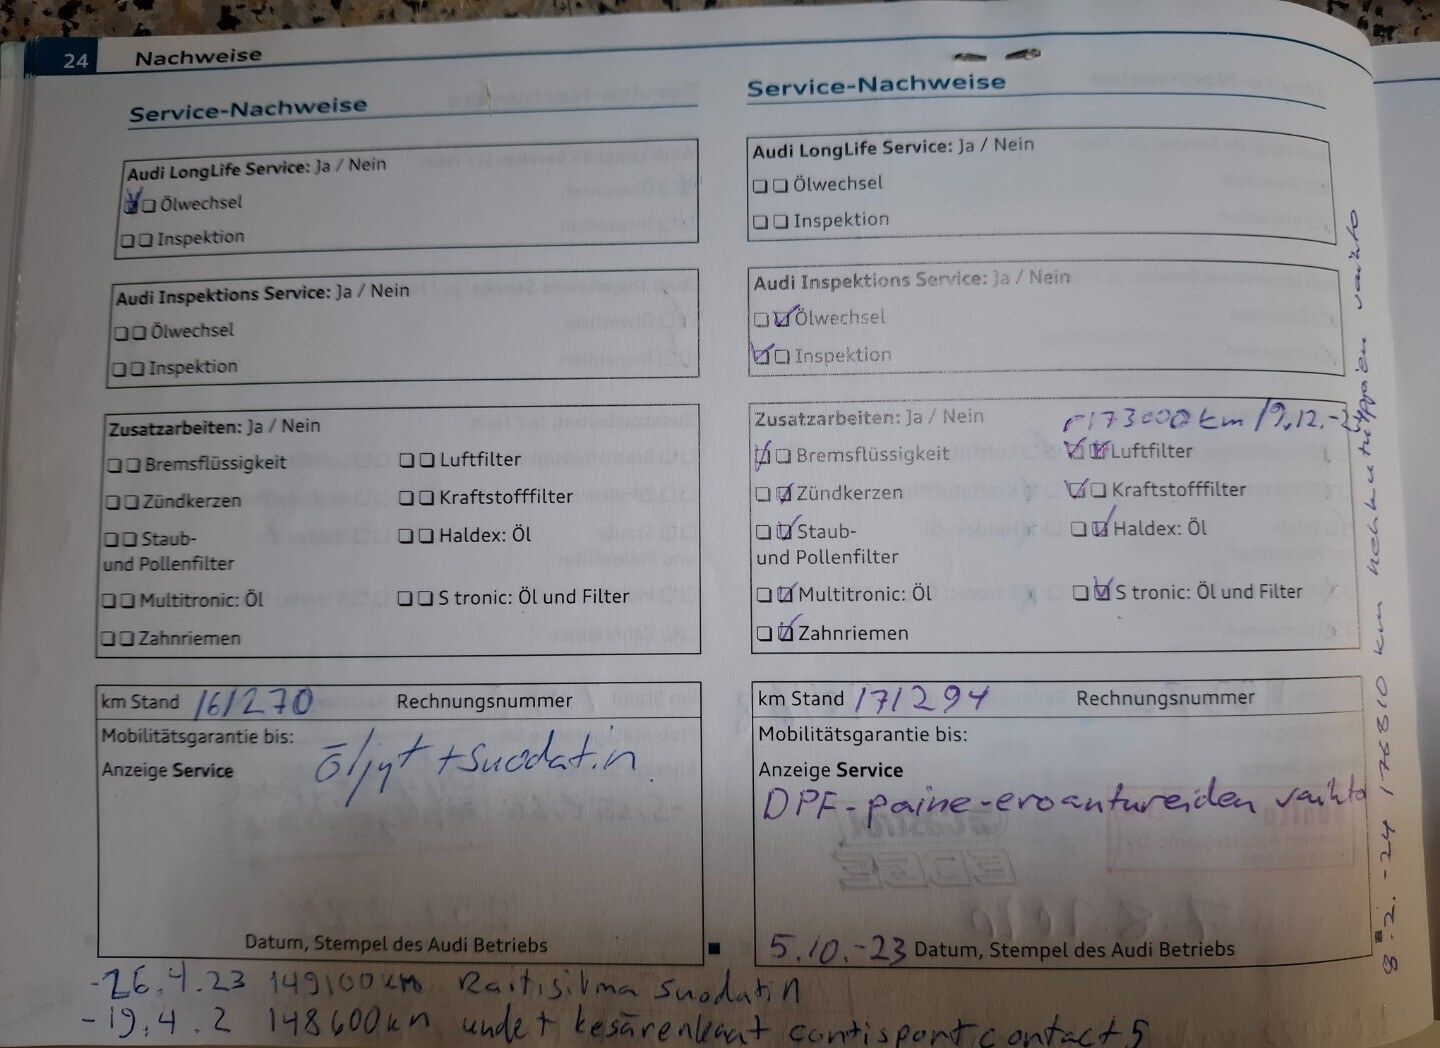 24 Nachweise
Service-Nachweise
Audi LongLife Service: Ja / Nein
Ölwechsel
Inspektion
Audi Inspektions Service: Ja / Nein
Ölwechsel
Inspektion
Zusatzarbeiten: Ja / Nein
Bremsflüssigkeit Luftfilter
Zündkerzen Kraftstofffilter
Staub- Haldex: Öl
und Pollenfilter
Multitronic: Öl S tronic: Öl und Filter
Zahnriemen
km Stand 161270 Rechnungsnummer
Mobilitätsgarantie bis:
Öljyt + Suodatin
Anzeige Service
Datum, Stempel des Audi Betriebs
Service-Nachweise
Audi LongLife Service: Ja / Nein
Ölwechsel
Inspektion
Audi Inspektions Service: Ja / Nein
Ölwechsel
Inspektion
Zusatzarbeiten: Ja / Nein
173000 km / 9.12.-
Bremsflüssigkeit Luftfilter
Zündkerzen Kraftstofffilter
Staub- Haldex: Öl
und Pollenfilter
Multitronic: Öl S tronic: Öl und Filter
Zahnriemen
km Stand 171294 Rechnungsnummer
Mobilitätsgarantie bis:
Anzeige Service
DPF-paine-eroantureiden vaihto
5.10.-23 Datum, Stempel des Audi Betriebs
8.2.-24 176810 km hehkutulppien vaihto
-26.4.23 149100km Raitisilma suodatin
-19.4.2 148600km uudet kesärenkaat contisportcontact 5